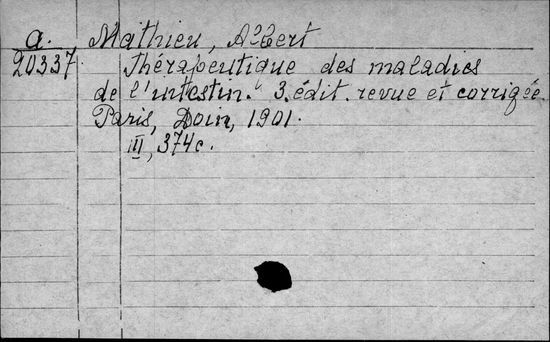 a. Mathieu, Albert
20337 Thérapeutique des maladies
de l'intestin. 3. édit. revue et corrigée.
Paris, Doin, 1901.
III, 374c.